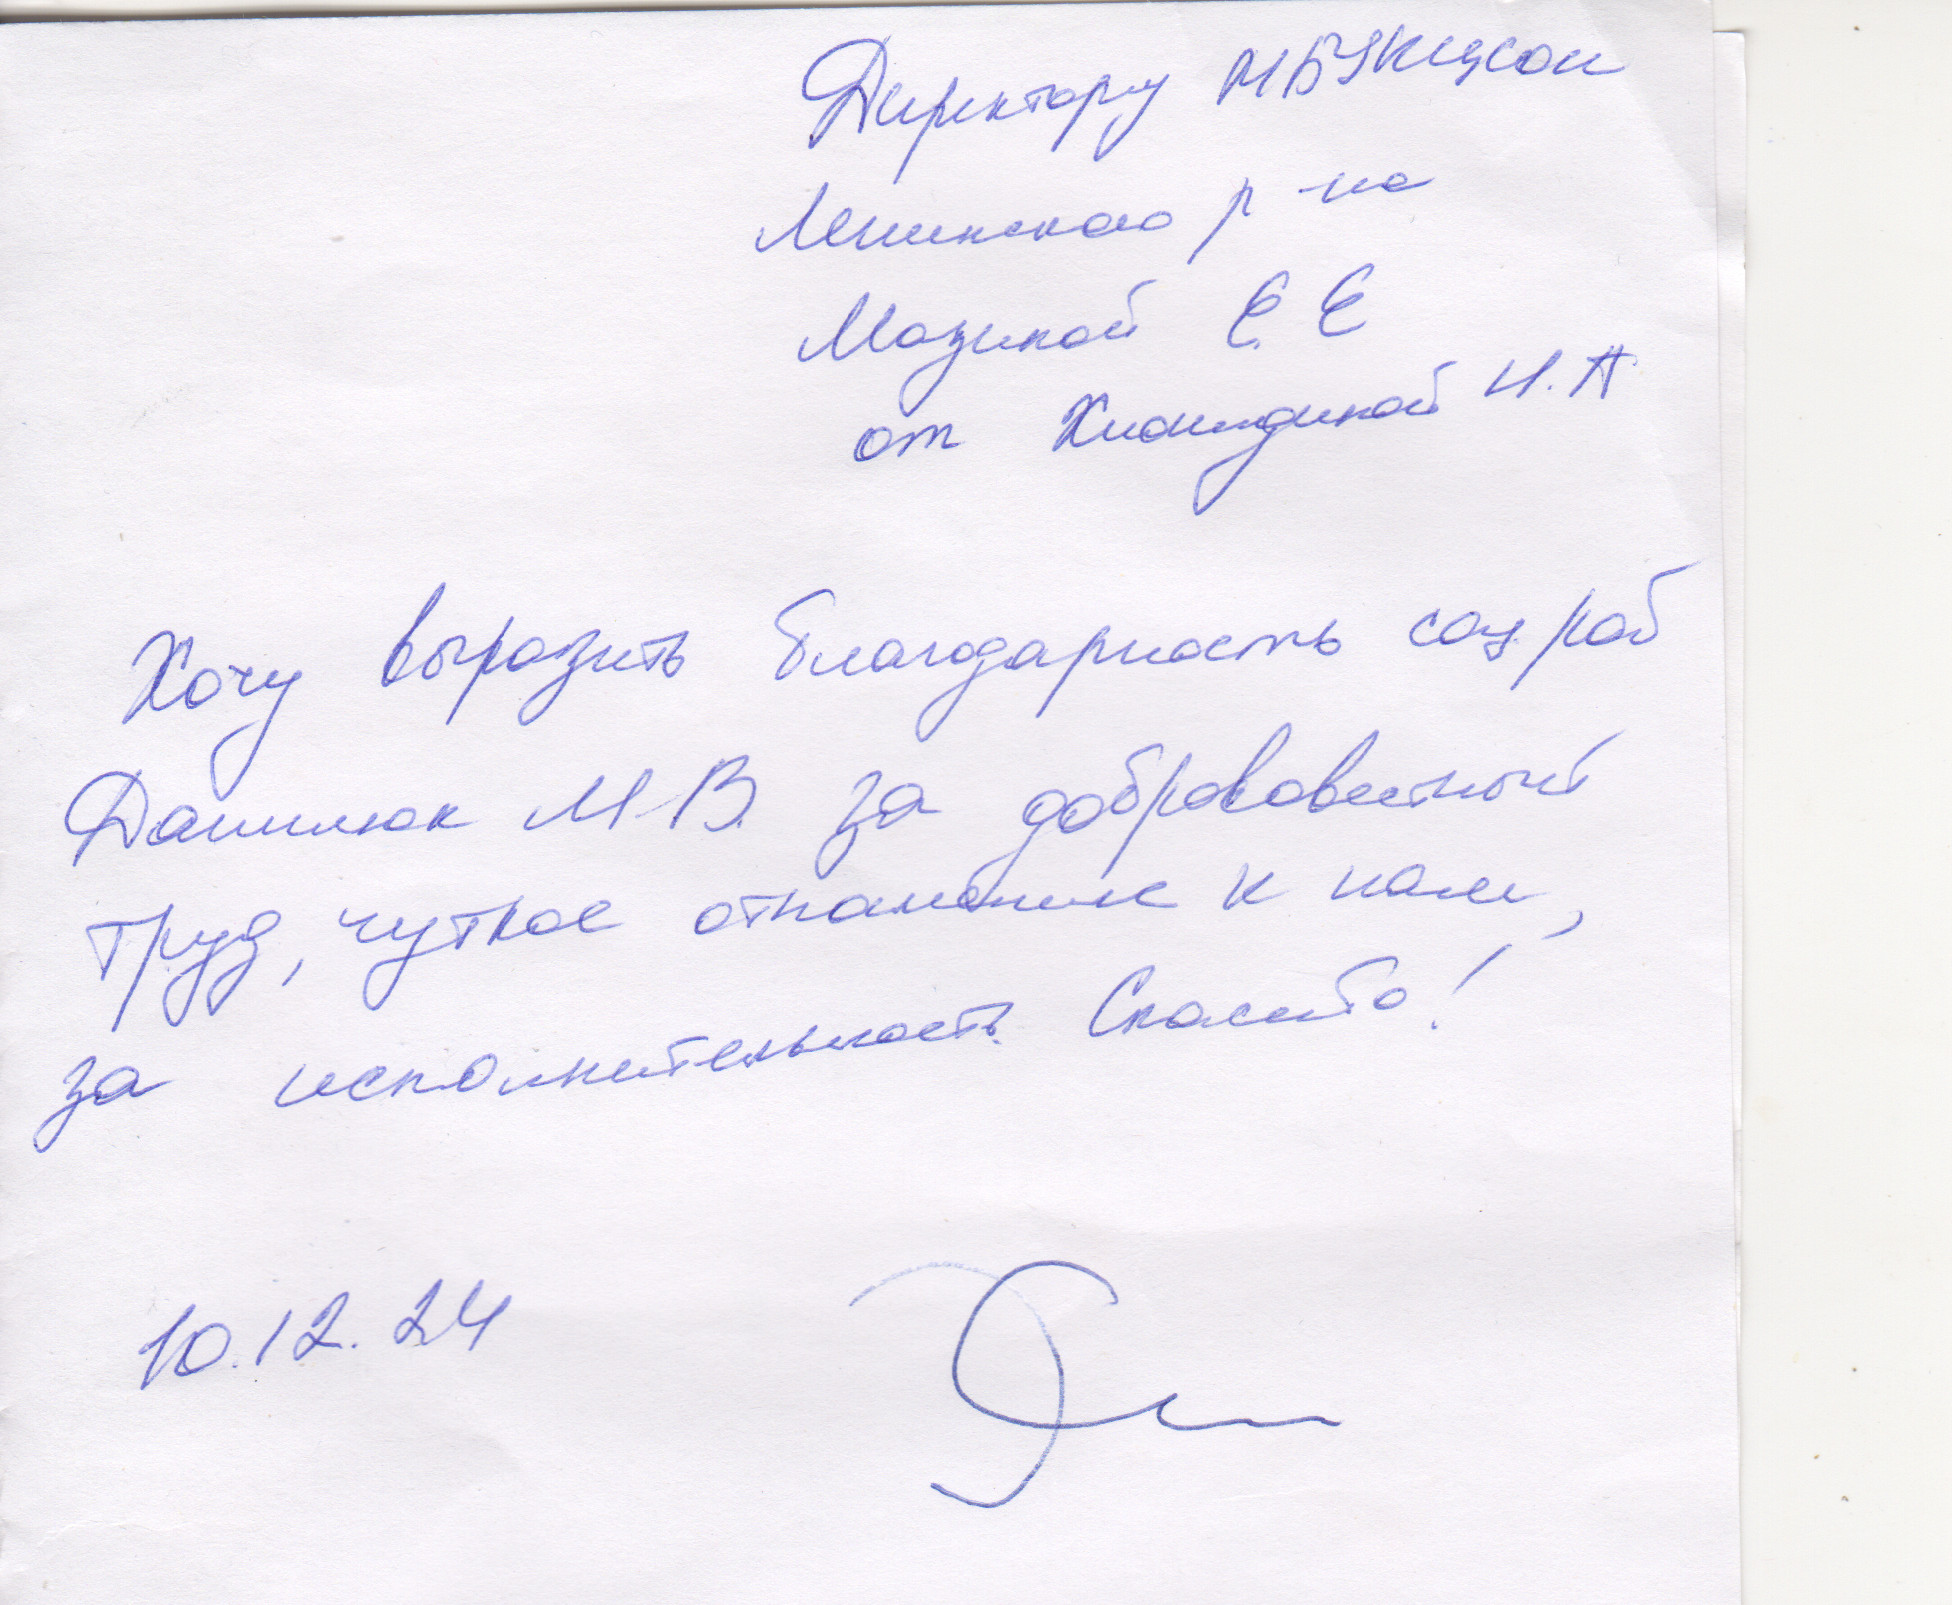 Директору МБУКЦСОН
Ленинского р-на
Мазиной Е. Е
от И. А
Хочу выразить благодарность соц. раб
Данилюк М. В. за добросовестный
труд, чуткое отношение к нам,
за исполнительность. Спасибо!
10.12.24